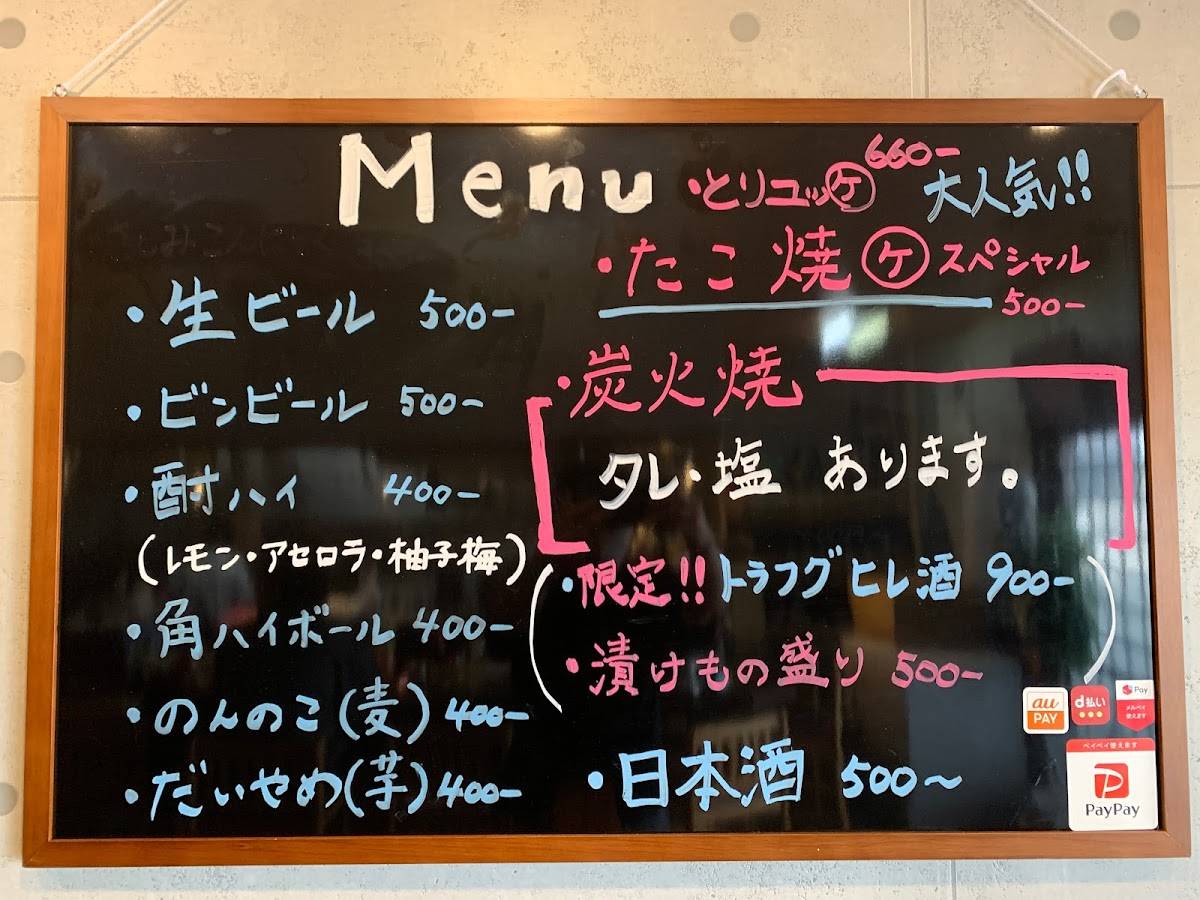 Menu
・とりユッケ 660-
大人気!!
・たこ焼ケスペシャル
500-
・生ビール 500-
・ビンビール 500-
・酎ハイ 400-
(レモン・アセロラ・柚子梅)
・角ハイボール 400-
・のんのこ(麦) 400-
・だいせめ(芋) 400-
・炭火焼
タレ・塩 あります。
・限定!! トラフグヒレ酒 900-
・漬けもの盛り 500-
・日本酒 500〜
au
PAY
d払い
Pay
メルペイ
使えます
ペイペイ使えます
PayPay